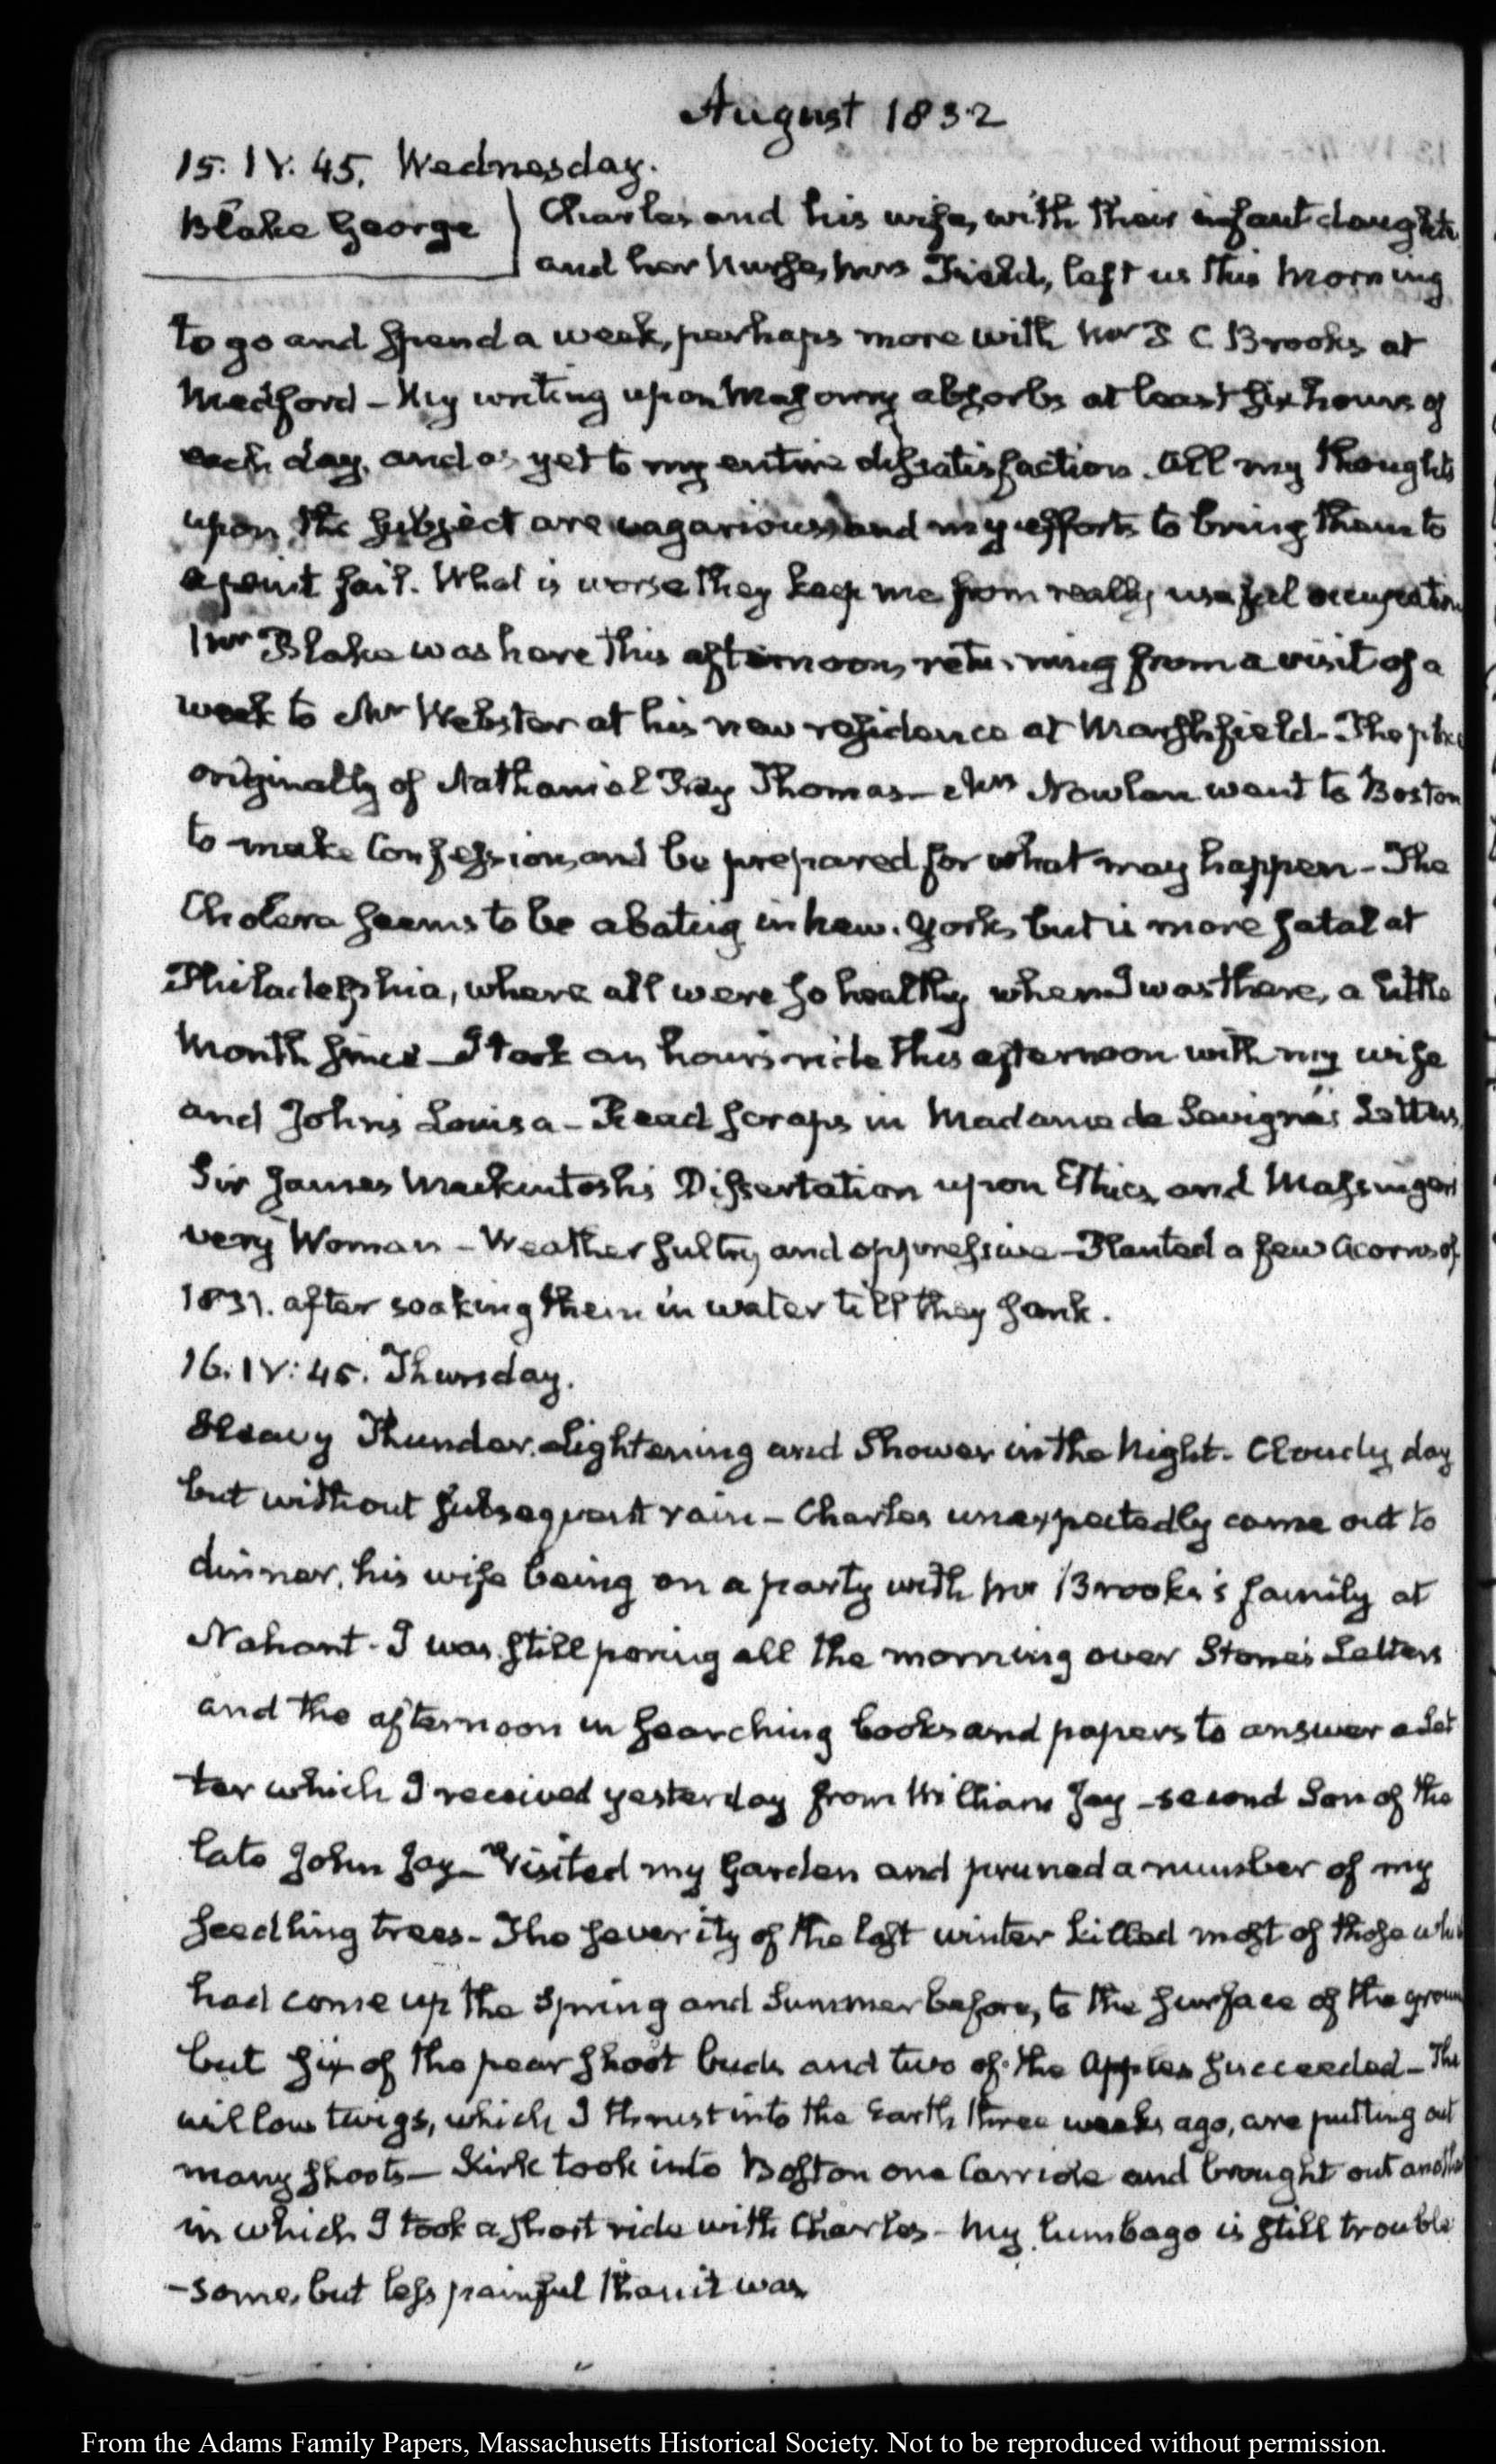 August 1832
15. IV. 45. Wednesday.
Blake George
Charles and his wife, with their infant daughte
and her Nurse, Mrs Field, left us this Morning
to go and spend a week, perhaps more with Mr P C Brooks at
Medford – My writing upon Masonry absorbs at least six hours of
each day, and as yet to my entire dissatisfaction. All my thoughts
upon the subject are vagarious, and my efforts to bring them to
a point fail. What is worse they keep me from really useful occupation
Mr Blake was here this afternoon, returning from a visit of a
week to Mr Webster at his new residence at Marshfield – The place
originally of Nathaniel Ray Thomas – Mrs Nowlan went to Boston
to make Confession, and be prepared for what may happen – The
Cholera seems to be abating in New York, but is more fatal at
Philadelphia, where all were so healthy when I was there, a little
Month since – I took an hour's ride this afternoon with my wife
and John's Louisa – Read scraps in Madame de Sevigné's Letters,
Sir James Mackintosh's Dissertation upon Ethics, and Massinger's
very Woman – Weather sultry and oppressive – Planted a few acorns of
1831. after soaking them in water till they sank.
16. IV: 45. Thursday.
Heavy Thunder, Lightening and Shower in the Night. Cloudy day
but without subsequent rain – Charles unexpectedly came out to
dinner, his wife being on a party with Mr Brooks's family at
Nahant – I was still poring all the morning over Stone's Letters
and the afternoon in searching books and papers to answer a Let
ter which I received yesterday from William Jay – second Son of the
late John Jay – Visited my Garden and pruned a number of my
seedling trees – The severity of the last winter killed most of those whi
had come up the Spring and Summer before, to the surface of the groun
but six of the pear shoot buds and two of the Apples succeeded – The
willow twigs, which I thrust into the Earth three weeks ago, are putting out
many shoots – Kirk took into Boston one Carriole and brought out another
in which I took a short ride with Charles – My lumbago is still trouble
-some, but less painful than it was
From the Adams Family Papers, Massachusetts Historical Society. Not to be reproduced without permission.